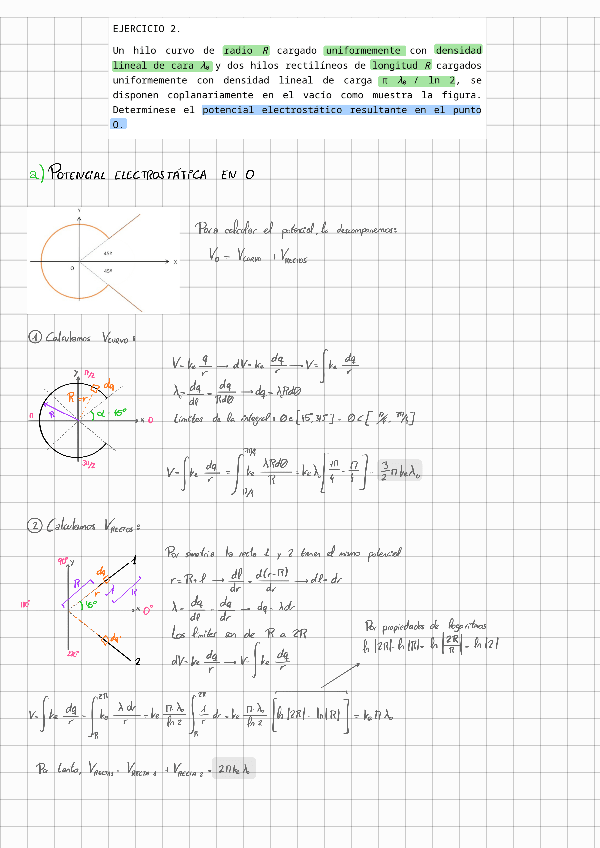 EJERCICIO 2.
Un hilo curvo de radio R cargado uniformemente con densidad
lineal de cara λ₀ y dos hilos rectilíneos de longitud R cargados
uniformemente con densidad lineal de carga π λ₀ / ln 2, se
disponen coplanariamente en el vacío como muestra la figura.
Determinese el potencial electrostático resultante en el punto
O.
a) POTENCIAL ELECTROSTÁTICA EN O
Para calcular el potencial, lo descomponemos:
V₀ = V_CURVO + V_RECTOS
Y
45º
O
X
45º
① Calculamos V_CURVO:
V = ke q/r → dV = ke dq/r → V = ∫ ke dq/r
λ = dq/dl = dq/Rdθ → dq = λRdθ
y π/2 dq
R=r
π R α=45° x 0
3π/2
V = ∫ ke dq/r = ∫ ke λRdθ/R = ke λ₀ [7π/4 - π/4] = 3/2 π ke λ₀
② Calculamos V_RECTOS:
Por simetría la recta 1 y 2 tienen el mismo potencial
r = R + l → dl/dr = d(r-R)/dr → dl = dr
λ = dq/dl = dq/dr → dq = λdr
Los límites son de R a 2R
dV = ke dq/r → V = ∫ ke dq/r
90° y dq 1
R r l R
45° x 0°
dq
2
Por propiedades de logaritmos
ln|2R| - ln|R| = ln|2R/R| = ln|2|
V = ∫ ke dq/r = ∫_R^2R ke λ dr/r = ke π·λ₀/ln 2 ∫_R^2R 1/r dr = ke π·λ₀/ln 2 [ln|2R| - ln|R|] = ke π λ₀
Por tanto, V_RECTAS = V_RECTA 1 + V_RECTA 2 = 2π ke λ₀